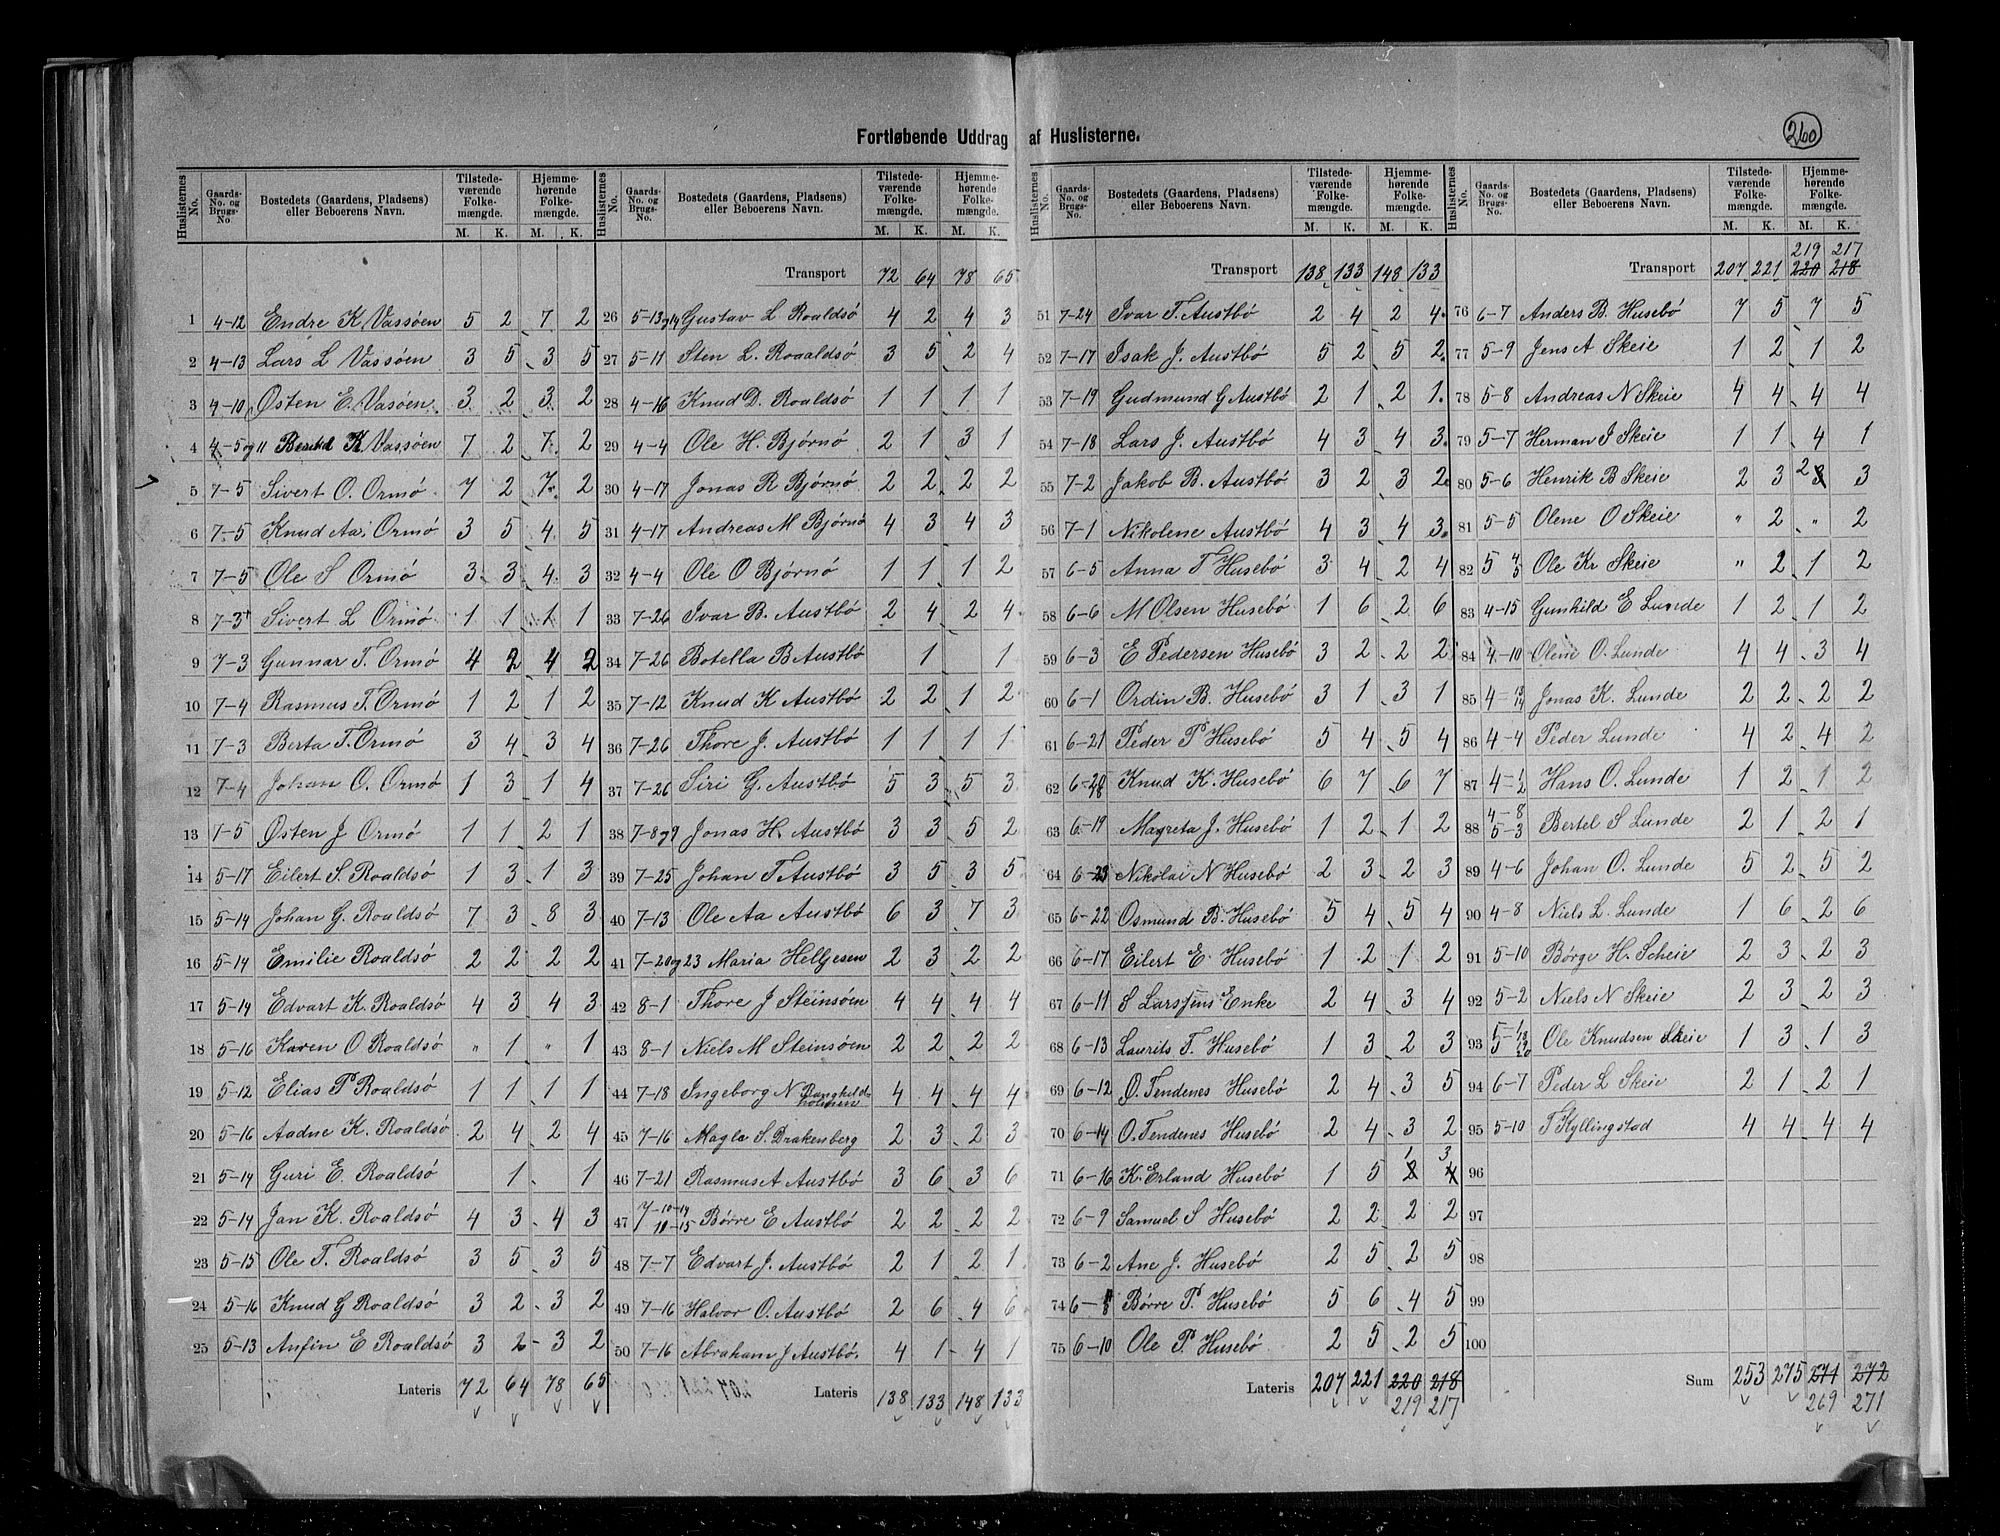 Fortløbende Uddrag af Huslisterne.
260
Huslisternes No. | Gaards-No. og Brugs-No. | Bostedets (Gaardens, Pladsens) eller Beboerens Navn. | Tilstedeværende Folkemængde. M. K. | Hjemmehørende Folkemængde. M. K.
1 4-12 Endre K Vassøen 5 2 7 2
2 4-13 Lars L Vassøen 3 5 3 5
3 4-10 Østen E. Vasøen 3 2 3 2
4 4-5 og 11 K Vassøen 7 2 7 2
5 7-5 Sivert O. Ormö 7 2 7 2
6 7-5 Knud Aa. Ormö 3 5 4 5
7 7-5 Ole S Ormö 3 3 4 3
8 7-3 Sivert L Ormö 1 1 1 1
9 7-3 Gunnar T. Ormö 4 2 4 2
10 7-4 Rasmus T. Ormö 1 2 1 2
11 7-3 Berta T. Ormö 3 4 3 4
12 7-4 Johan O. Ormö 1 3 1 4
13 7-5 Østen J Ormö 1 1 2 1
14 5-17 Eilert S. Roaldsö 1 3 1 3
15 5-14 Johan G. Roaldsö 7 3 8 3
16 5-14 Emilie Roaldsö 2 2 2 2
17 5-14 Edvart K. Roaldsö 4 3 4 3
18 5-16 Karen O Roaldsö " 1 " 1
19 5-12 Elias P Roaldsö 1 1 1 1
20 5-16 Aadne K. Roaldsö 2 4 2 4
21 5-14 Guri E. Roaldsö 1 1
22 5-14 Jan K. Roaldsö 4 3 4 3
23 5-15 Ole T. Roaldsö 3 5 3 5
24 5-16 Knud G Roaldsö 3 2 3 2
25 5-13 Anfin E Roaldsö 3 2 3 2
Lateris 72 64 78 65
Huslisternes No. | Gaards-No. og Brugs-No. | Bostedets (Gaardens, Pladsens) eller Beboerens Navn. | Tilstedeværende Folkemængde. M. K. | Hjemmehørende Folkemængde. M. K.
Transport 72 64 78 65
26 5-13 og 14 Gustav L Roaldsö 4 2 4 3
27 5-11 Sten L. Roaaldsö 3 5 2 4
28 4-16 Knud D. Roaldsö 1 1 1 1
29 4-4 Ole H. Bjørnö 2 1 3 1
30 4-17 Jonas R Bjørnö 2 2 2 2
31 4-17 Andreas M Bjørnö 4 3 4 3
32 4-4 Ole O Bjørnö 1 1 1 2
33 7-26 Ivar B. Austbö 2 4 2 4
34 7-26 Botella B Austbö 1 1
35 7-12 Knud K Austbö 2 2 1 2
36 7-26 Thore J. Austbö 1 1 1 1
37 7-26 Siri G. Austbö 5 3 5 3
38 7-8 og 9 Jonas H. Austbö 3 3 5 2
39 7-25 Johan T Austbö 3 5 3 5
40 7-13 Ole Aa Austbö 6 3 7 3
41 7-20 og 23 Maria Helgesen 2 3 2 2
42 8-1 Thore J Steinsöen 4 4 4 4
43 8-1 Niels M Steinsöen 2 2 2 2
44 7-18 Ingeborg N Ranghildholmen 4 4 4 4
45 7-16 Magla S. Drakenberg 2 3 2 3
46 7-21 Rasmus A Austbö 3 6 3 6
47 7-10-14 10-15 Börre E Austbö 2 2 2 2
48 7-7 Edvart J. Austbö 2 1 2 1
49 7-16 Halvor O. Austbö 2 6 4 6
50 7-16 Abraham J Austbö. 4 1 4 1
Lateris 138 133 148 133
Huslisternes No. | Gaards-No. og Brugs-No. | Bostedets (Gaardens, Pladsens) eller Beboerens Navn. | Tilstedeværende Folkemængde. M. K. | Hjemmehørende Folkemængde. M. K.
Transport 138 133 148 133
51 7-24 Ivar T. Austbö 2 4 2 4
52 7-17 Isak J. Austbö 5 2 5 2
53 7-19 Gudmund G Austbö 2 1 2 1
54 7-18 Lars J. Austbö 4 3 4 3
55 7-2 Jakob B. Austbö 3 2 3 2
56 7-1 Nikolene Austbö 4 3 4 3
57 6-5 Anna T Husebö 3 4 2 4
58 6-6 M Olsen Husebö 1 6 2 6
59 6-3 E Pedersen Husebö 3 2 2 2
60 6-1 Ordin B. Husebö 3 1 3 1
61 6-21 Peder P Husebö 5 4 5 4
62 6- Knud K. Husebö 6 7 6 7
63 6-19 Magreta J. Husebö 1 2 1 2
64 6-23 Nikolai N Husebö 2 3 2 3
65 6-22 Osmund B. Husebö 5 4 5 4
66 6-17 Eilert E Husebö 1 2 1 2
67 6-11 S Larssens Enke 2 4 3 4
68 6-13 Laurits T. Husebö 1 3 2 3
69 6-12 O. Tendenes Husebö 2 4 3 5
70 6-14 O. Tendenes Husebö 2 4 3 2
71 6-16 K. Erland Husebö 1 5 1 3
72 6-9 Samuel S Husebö 2 2 2 2
73 6-2 Ane J. Husebö 2 5 2 5
74 6-8 Børre P. Husebö 5 6 4 5
75 6-10 Ole P. Husebö 2 5 2 5
Lateris 207 221 220 218
219 217
Huslisternes No. | Gaards-No. og Brugs-No. | Bostedets (Gaardens, Pladsens) eller Beboerens Navn. | Tilstedeværende Folkemængde. M. K. | Hjemmehørende Folkemængde. M. K.
219 217
Transport 207 221 220 218
76 6-7 Anders B. Husebö 7 5 7 5
77 5-9 Jens A Skeie 1 2 1 2
78 5-8 Andreas N Skeie 4 4 4 4
79 5-7 Herman J Skeie 1 1 4 1
80 5-6 Henrik B Skeie 2 3 2 3
81 5-5 Olene O Skeie " 2 " 2
82 5 4/5 Ole Kr Skeie " 2 1 2
83 4-15 Gunhild E Lunde 1 2 1 2
84 4-10 Olene O. Lunde 4 4 3 4
85 4-13/14 Jonas K. Lunde 2 2 2 2
86 4-4 Peder Lunde 4 2 4 2
87 4-1/2 Hans O. Lunde 1 2 1 2
88 4-8 5-3 Bertel S Lunde 2 1 2 1
89 4-6 Johan O. Lunde 5 2 5 2
90 4-8 Niels L. Lunde 1 6 2 6
91 5-10 Børge H. Scheie 2 3 2 3
92 5-2 Niels N Skeie 2 3 2 3
93 5-1 5-18/20 Ole Knudsen Skeie 1 3 1 3
94 6-7 Peder L Skeie 2 1 2 1
95 5-10 T Kyllingstad 4 4 4 4
96
97
98
99
100
Sum 253 275 271 272
269 271